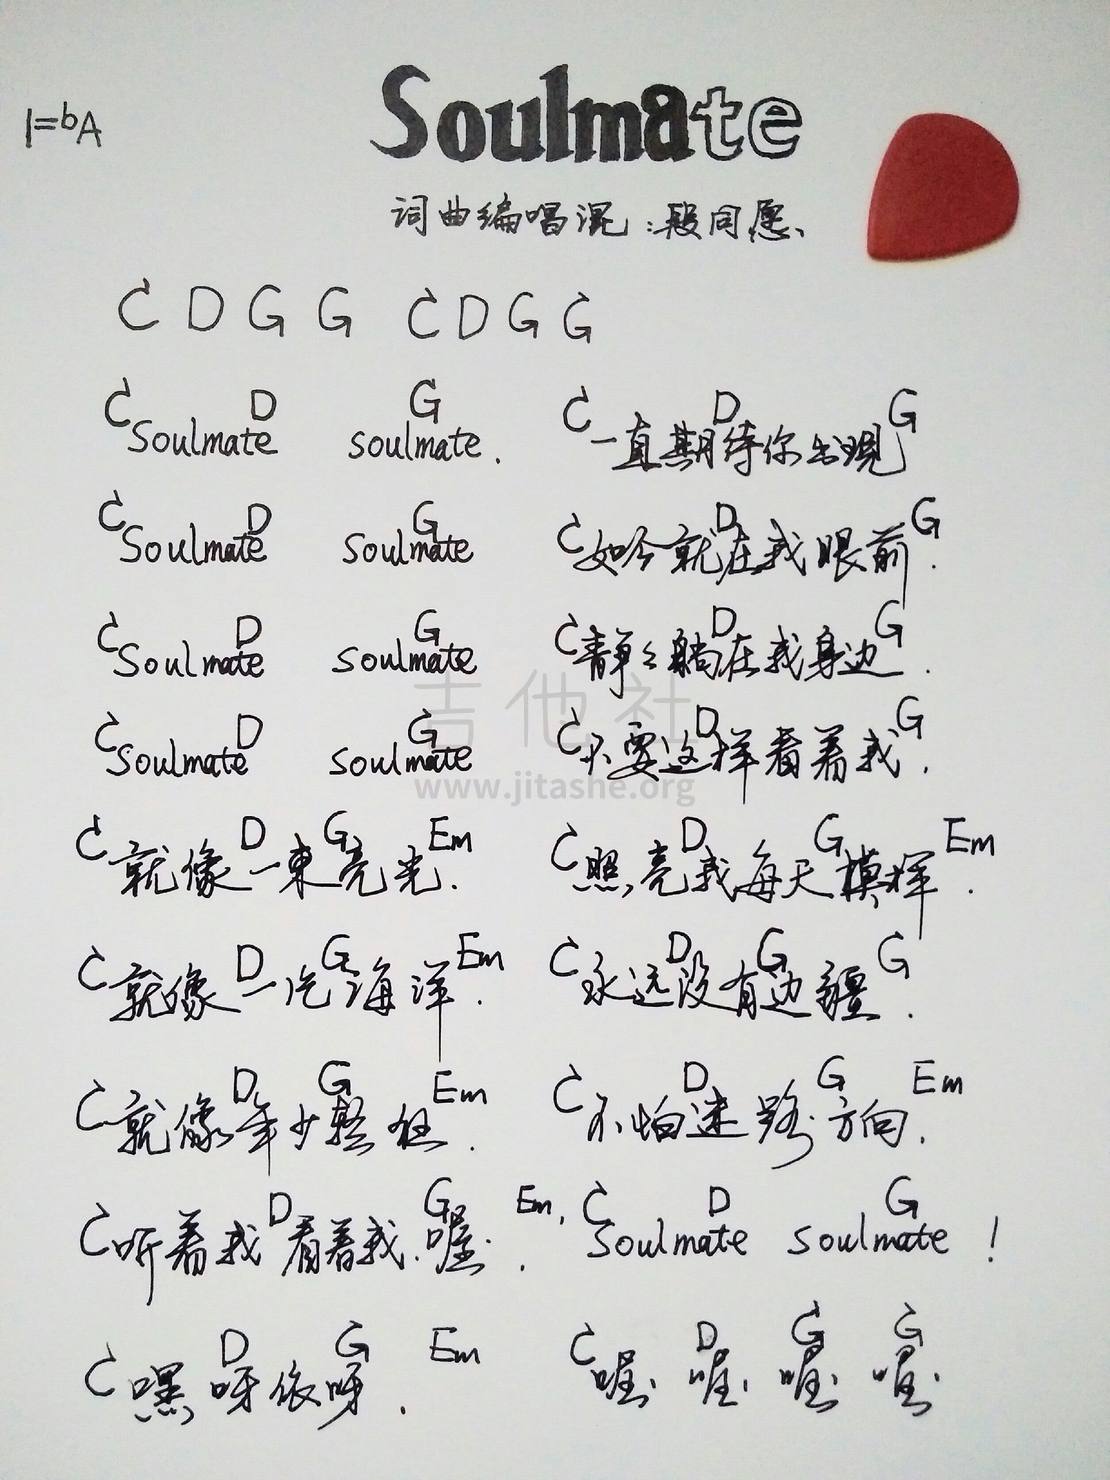 Soulmate
1=bA
词曲编唱混：段同愿、
C D G G C D G G
C D G C D G
Soulmate soulmate. 一直期待你出現
C D G C D G
Soulmate Soulmate 如今就在我眼前.
C D G C D G
Soulmate soulmate 静々躺在我身边.
C D G C D G
Soulmate soulmate 不要这样看着我.
C D G Em C D G Em
就像一束亮光. 照亮我每天模样.
C D G Em C D G G
就像一片海洋. 永远没有边疆.
C D G Em C D G Em
就像年少轻狂. 不怕迷路方向.
C D G Em, C D G
听着我看着我.喔. Soulmate soulmate !
C D G Em C D G G
嘿呀依呀. 喔. 喔. 喔. 喔.
吉他社
www.jitashe.org